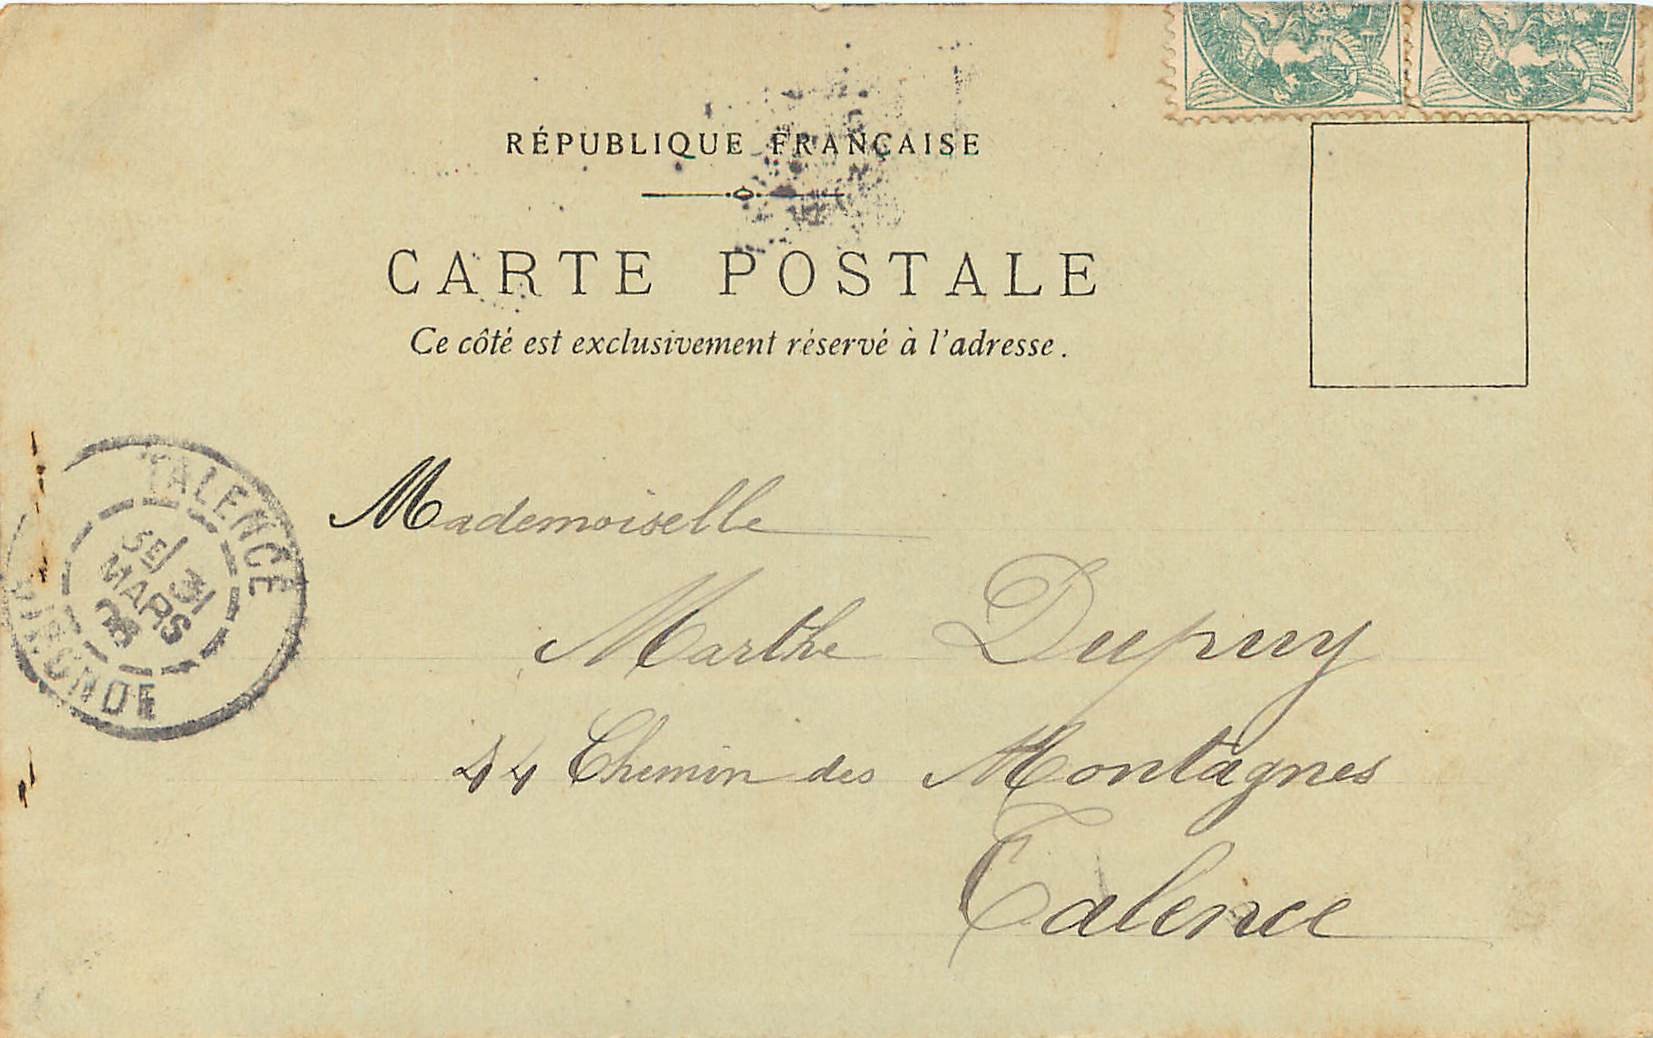 RÉPUBLIQUE FRANÇAISE
CARTE POSTALE
Ce côté est exclusivement réservé à l'adresse.
TALENCE
31
MARS
GIRONDE
Mademoiselle
Marthe Dupuy
44 Chemin des Montagnes
Talence